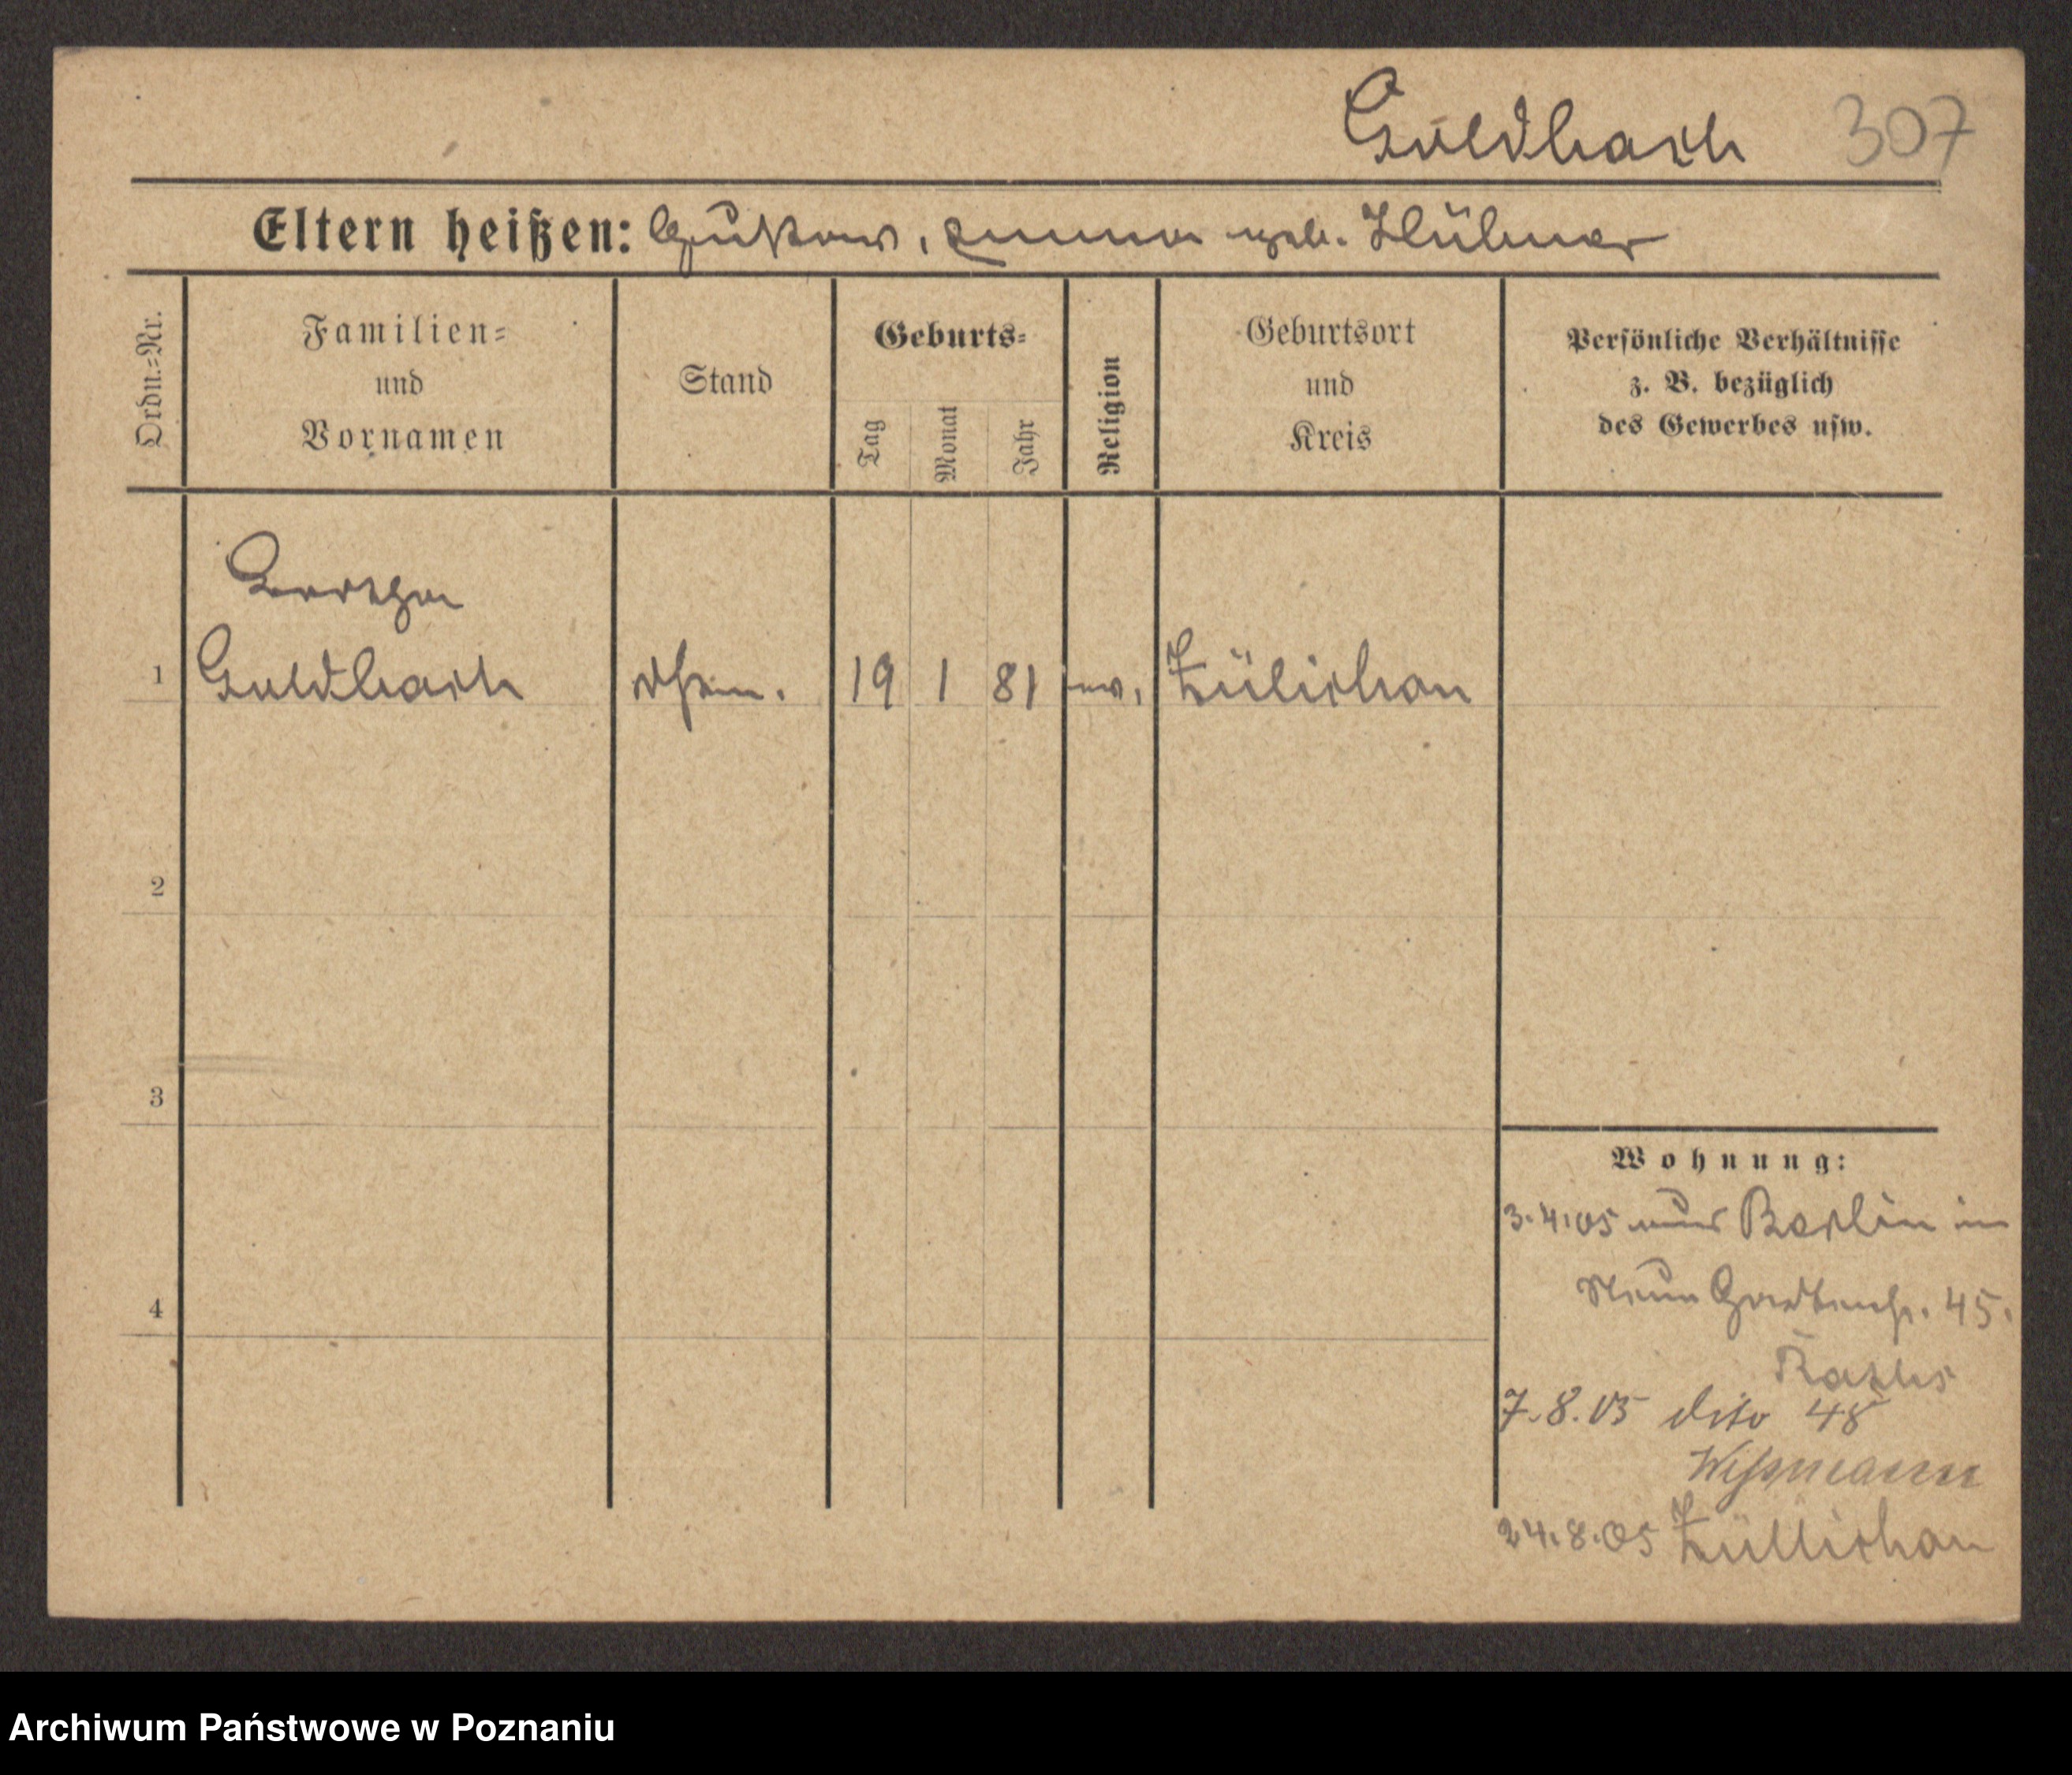 Goldbach 307
Eltern heißen: Gustav, Emma geb. Hübner
Ordn.=Nr.
Familien=
und
Vornamen
Stand
Geburts=
Tag
Monat
Jahr
Religion
Geburtsort
und
Kreis
Persönliche Verhältnisse
z. B. bezüglich
des Gewerbes usw.
1
Goldbach
19 1 81 ev. Zülichau
2
3
4
Wohnung:
3.4.05 aus Berlin in
Neue Gartenstr. 45.
7.8.05 dito 48
Wißmann
24.8.05 Züllichau
Archiwum Państwowe w Poznaniu